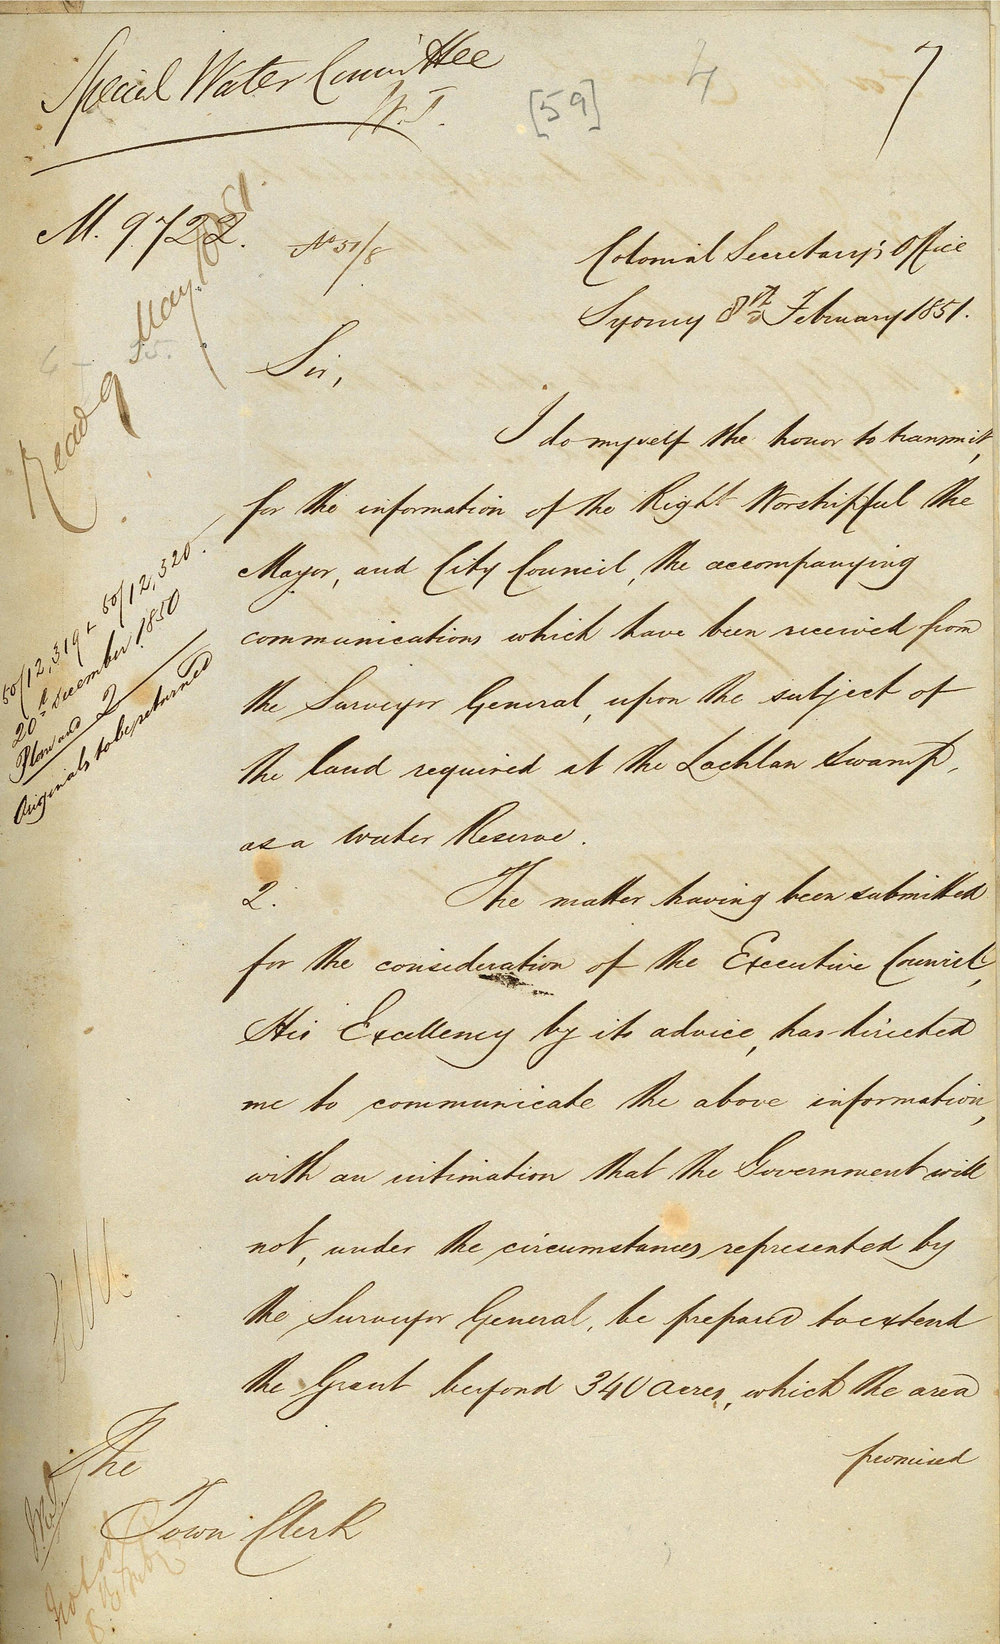 Special Water Committee
W.J.
[59]
4
7
M. 9722.
No 51/8
Colonial Secretary's Office
Sydney 8th February 1851.
Read 9 May 1851.
Sir,
I do myself the honor to transmit,
for the information of the Right Worshipful the
Mayor, and City Council, the accompanying
communications which have been received from
the Surveyor General, upon the subject of
the land required at the Lachlan Swamp,
as a Water Reserve.
50/12,319 & 50/12,320.
20th December 1850
Plan and 2
Originals to be returned
2. The matter having been submitted
for the consideration of the Executive Council,
His Excellency by its advice, has directed
me to communicate the above information,
with an intimation that the Government will
not, under the circumstances represented by
the Surveyor General, be prepared to extend
the Grant beyond 340 acres, which the area
promised
The
Town Clerk